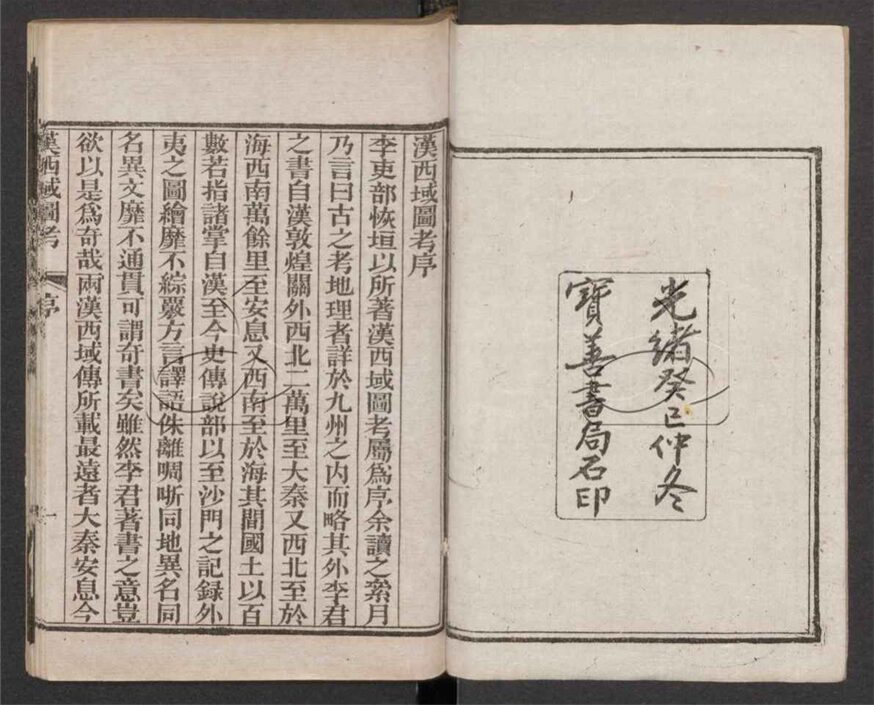 光緒癸巳仲冬
寶善書局石印
漢西域圖考序
李吏部恢垣以所著漢西域圖考屬為序余讀之累月
乃言曰古之考地理者詳於九州之內而略其外李君
之書自漢敦煌關外西北二萬里至大秦又西北至於
海西南萬餘里至安息又西南至於海其間國土以百
數若指諸掌自漢至今史傳說部以至沙門之記錄外
夷之圖繪靡不綜覈方言譯語侏離啁哳同地異名同
名異文靡不通貫可謂奇書矣雖然李君著書之意豈
欲以是爲奇哉兩漢西域傳所載最遠者大秦安息今
漢西域圖考
序
一